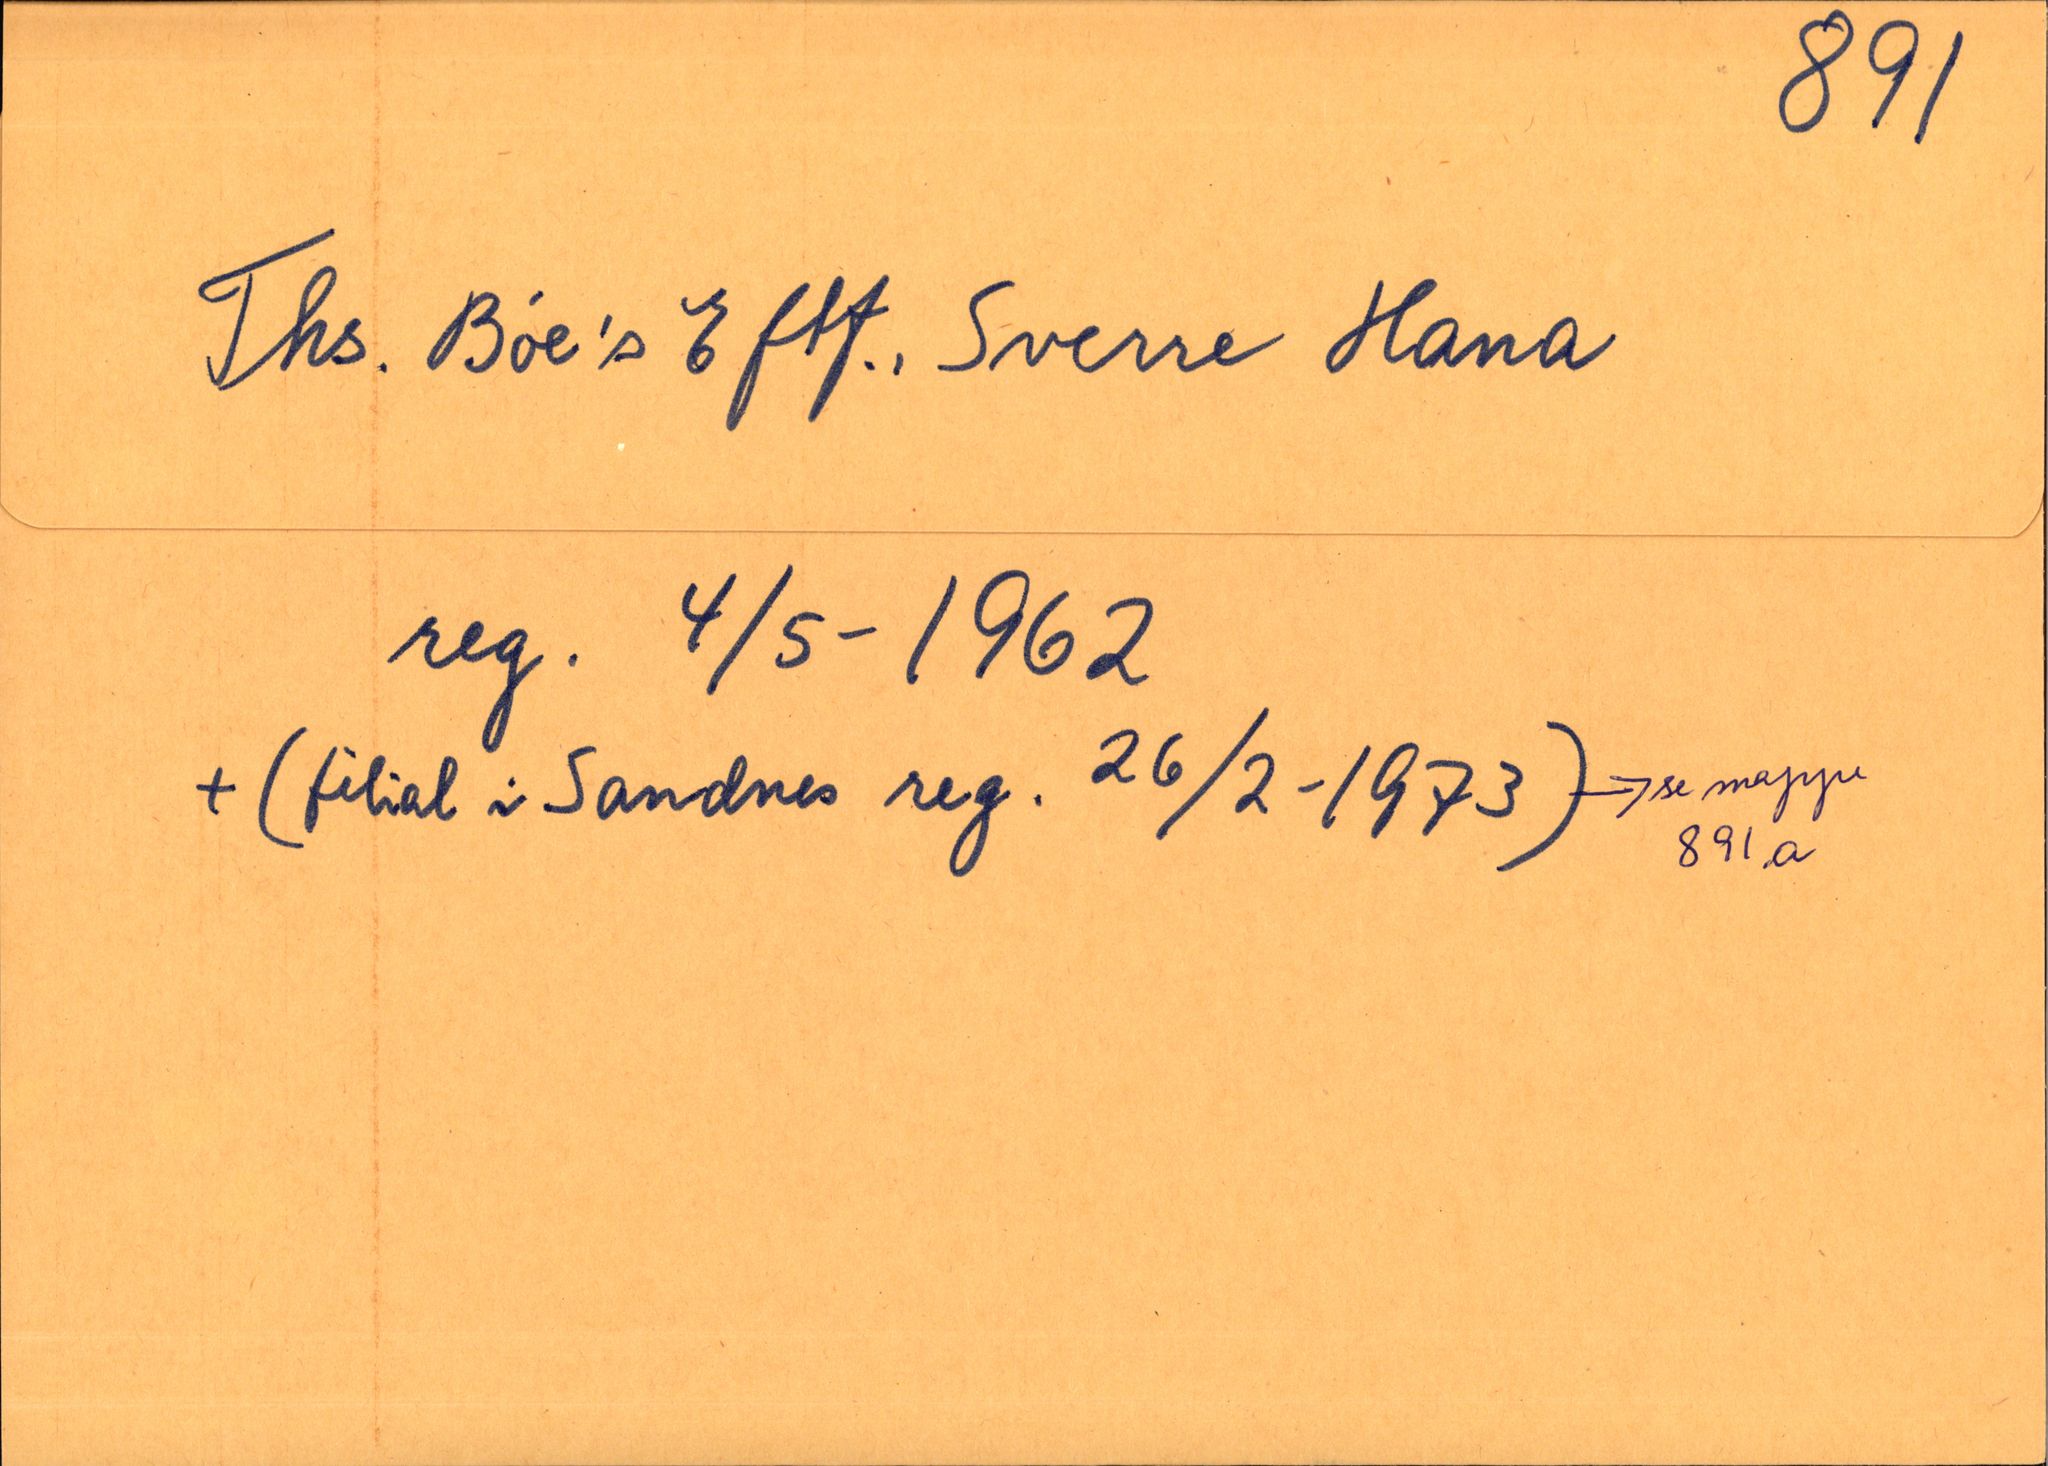 891
Ths. Bóe's Eftf., Sverre Hana
reg. 4/5-1962
+ (filial i Sandnes reg. 26/2-1973) → se mappe
891.a